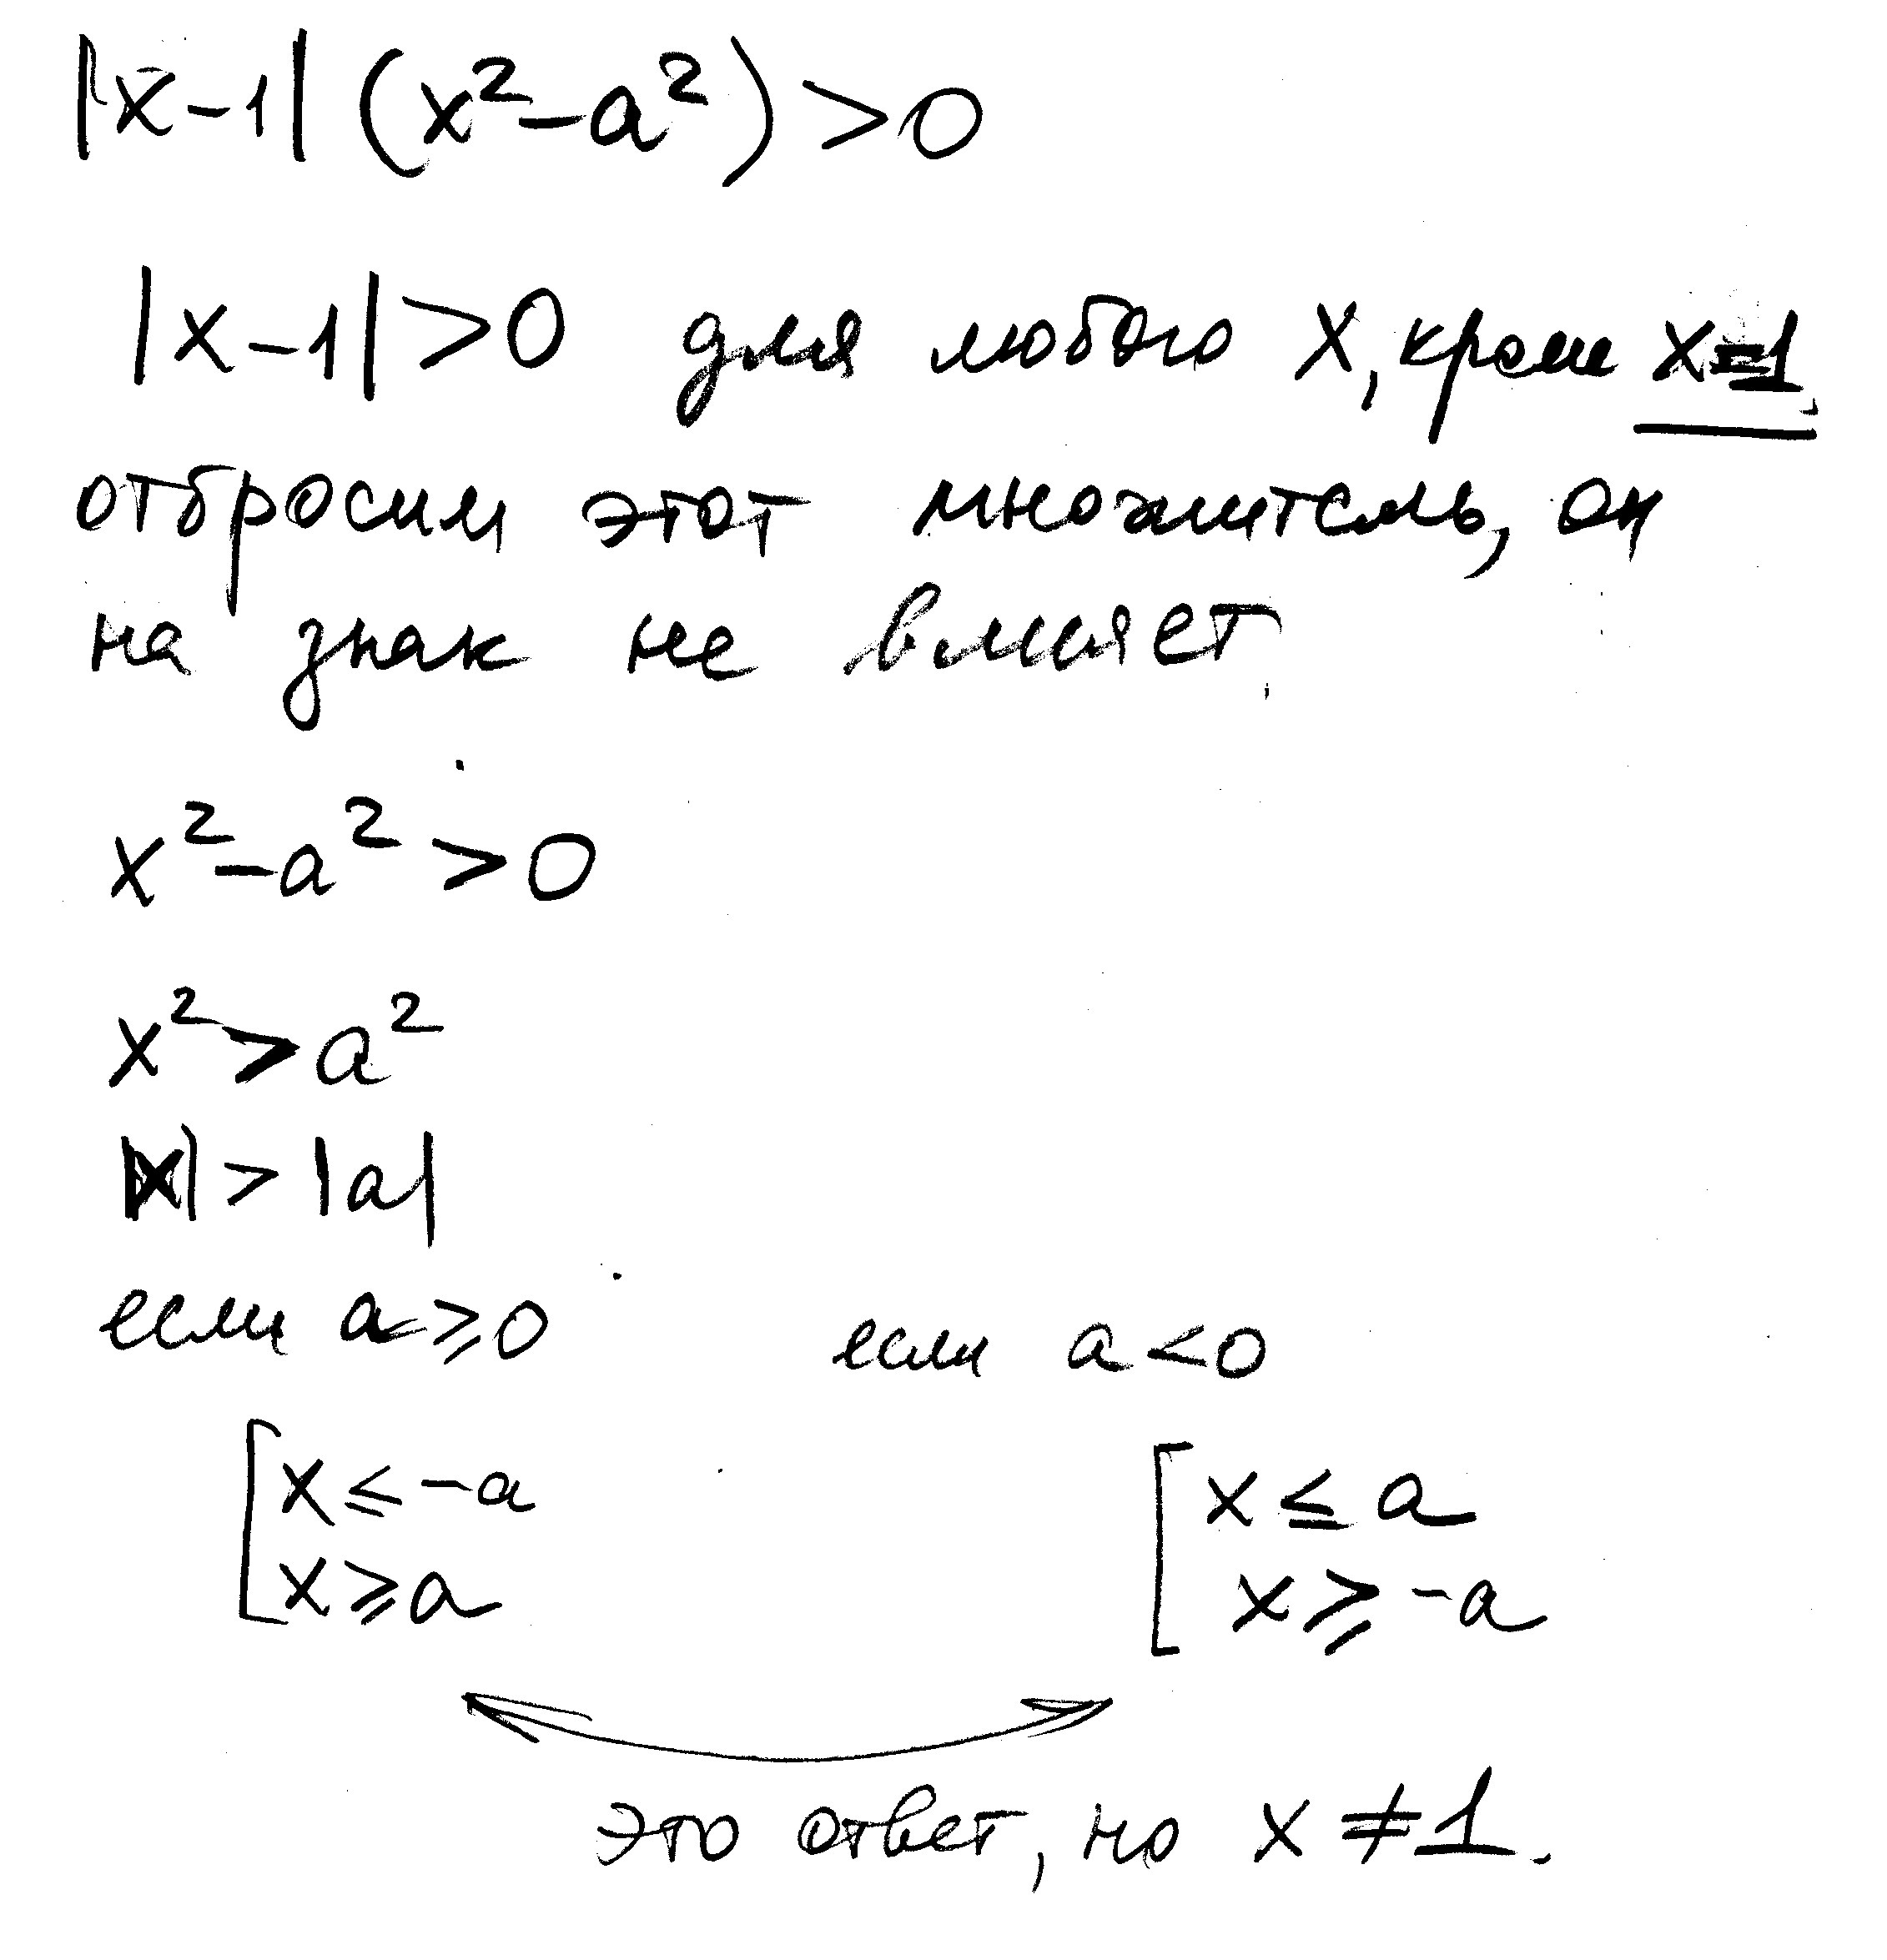 |x-1| (x²-a²) >0
|x-1| >0 для любого x, кроме x=1
отбросим этот множитель, он
на знак не влияет.
x²-a² >0
x² > a²
|x| > |a|
если a ⩾ 0 если a < 0
[ x ⩽ -a [ x ⩽ a
x ⩾ a x ⩾ -a
это ответ, но x ≠ 1.